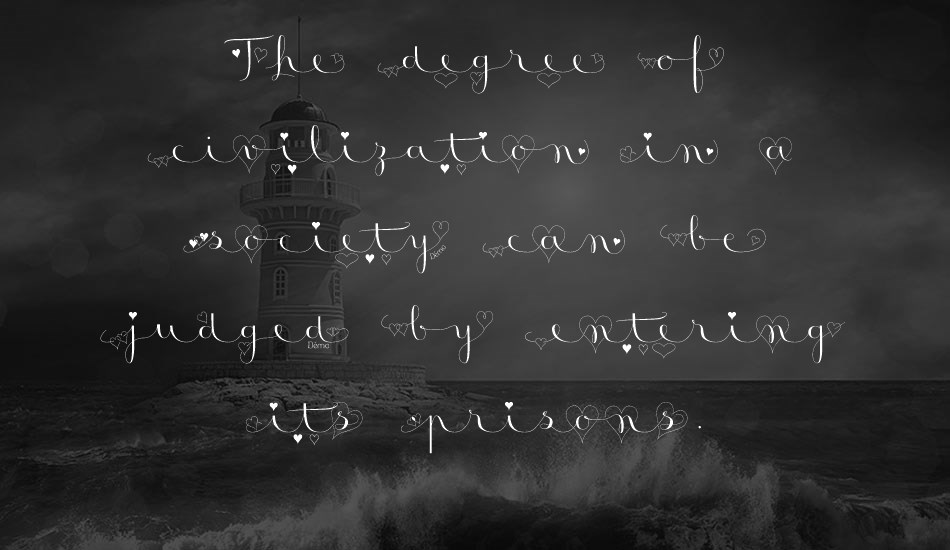 The degree of
civilization in a
society can be
judged by entering
its prisons.